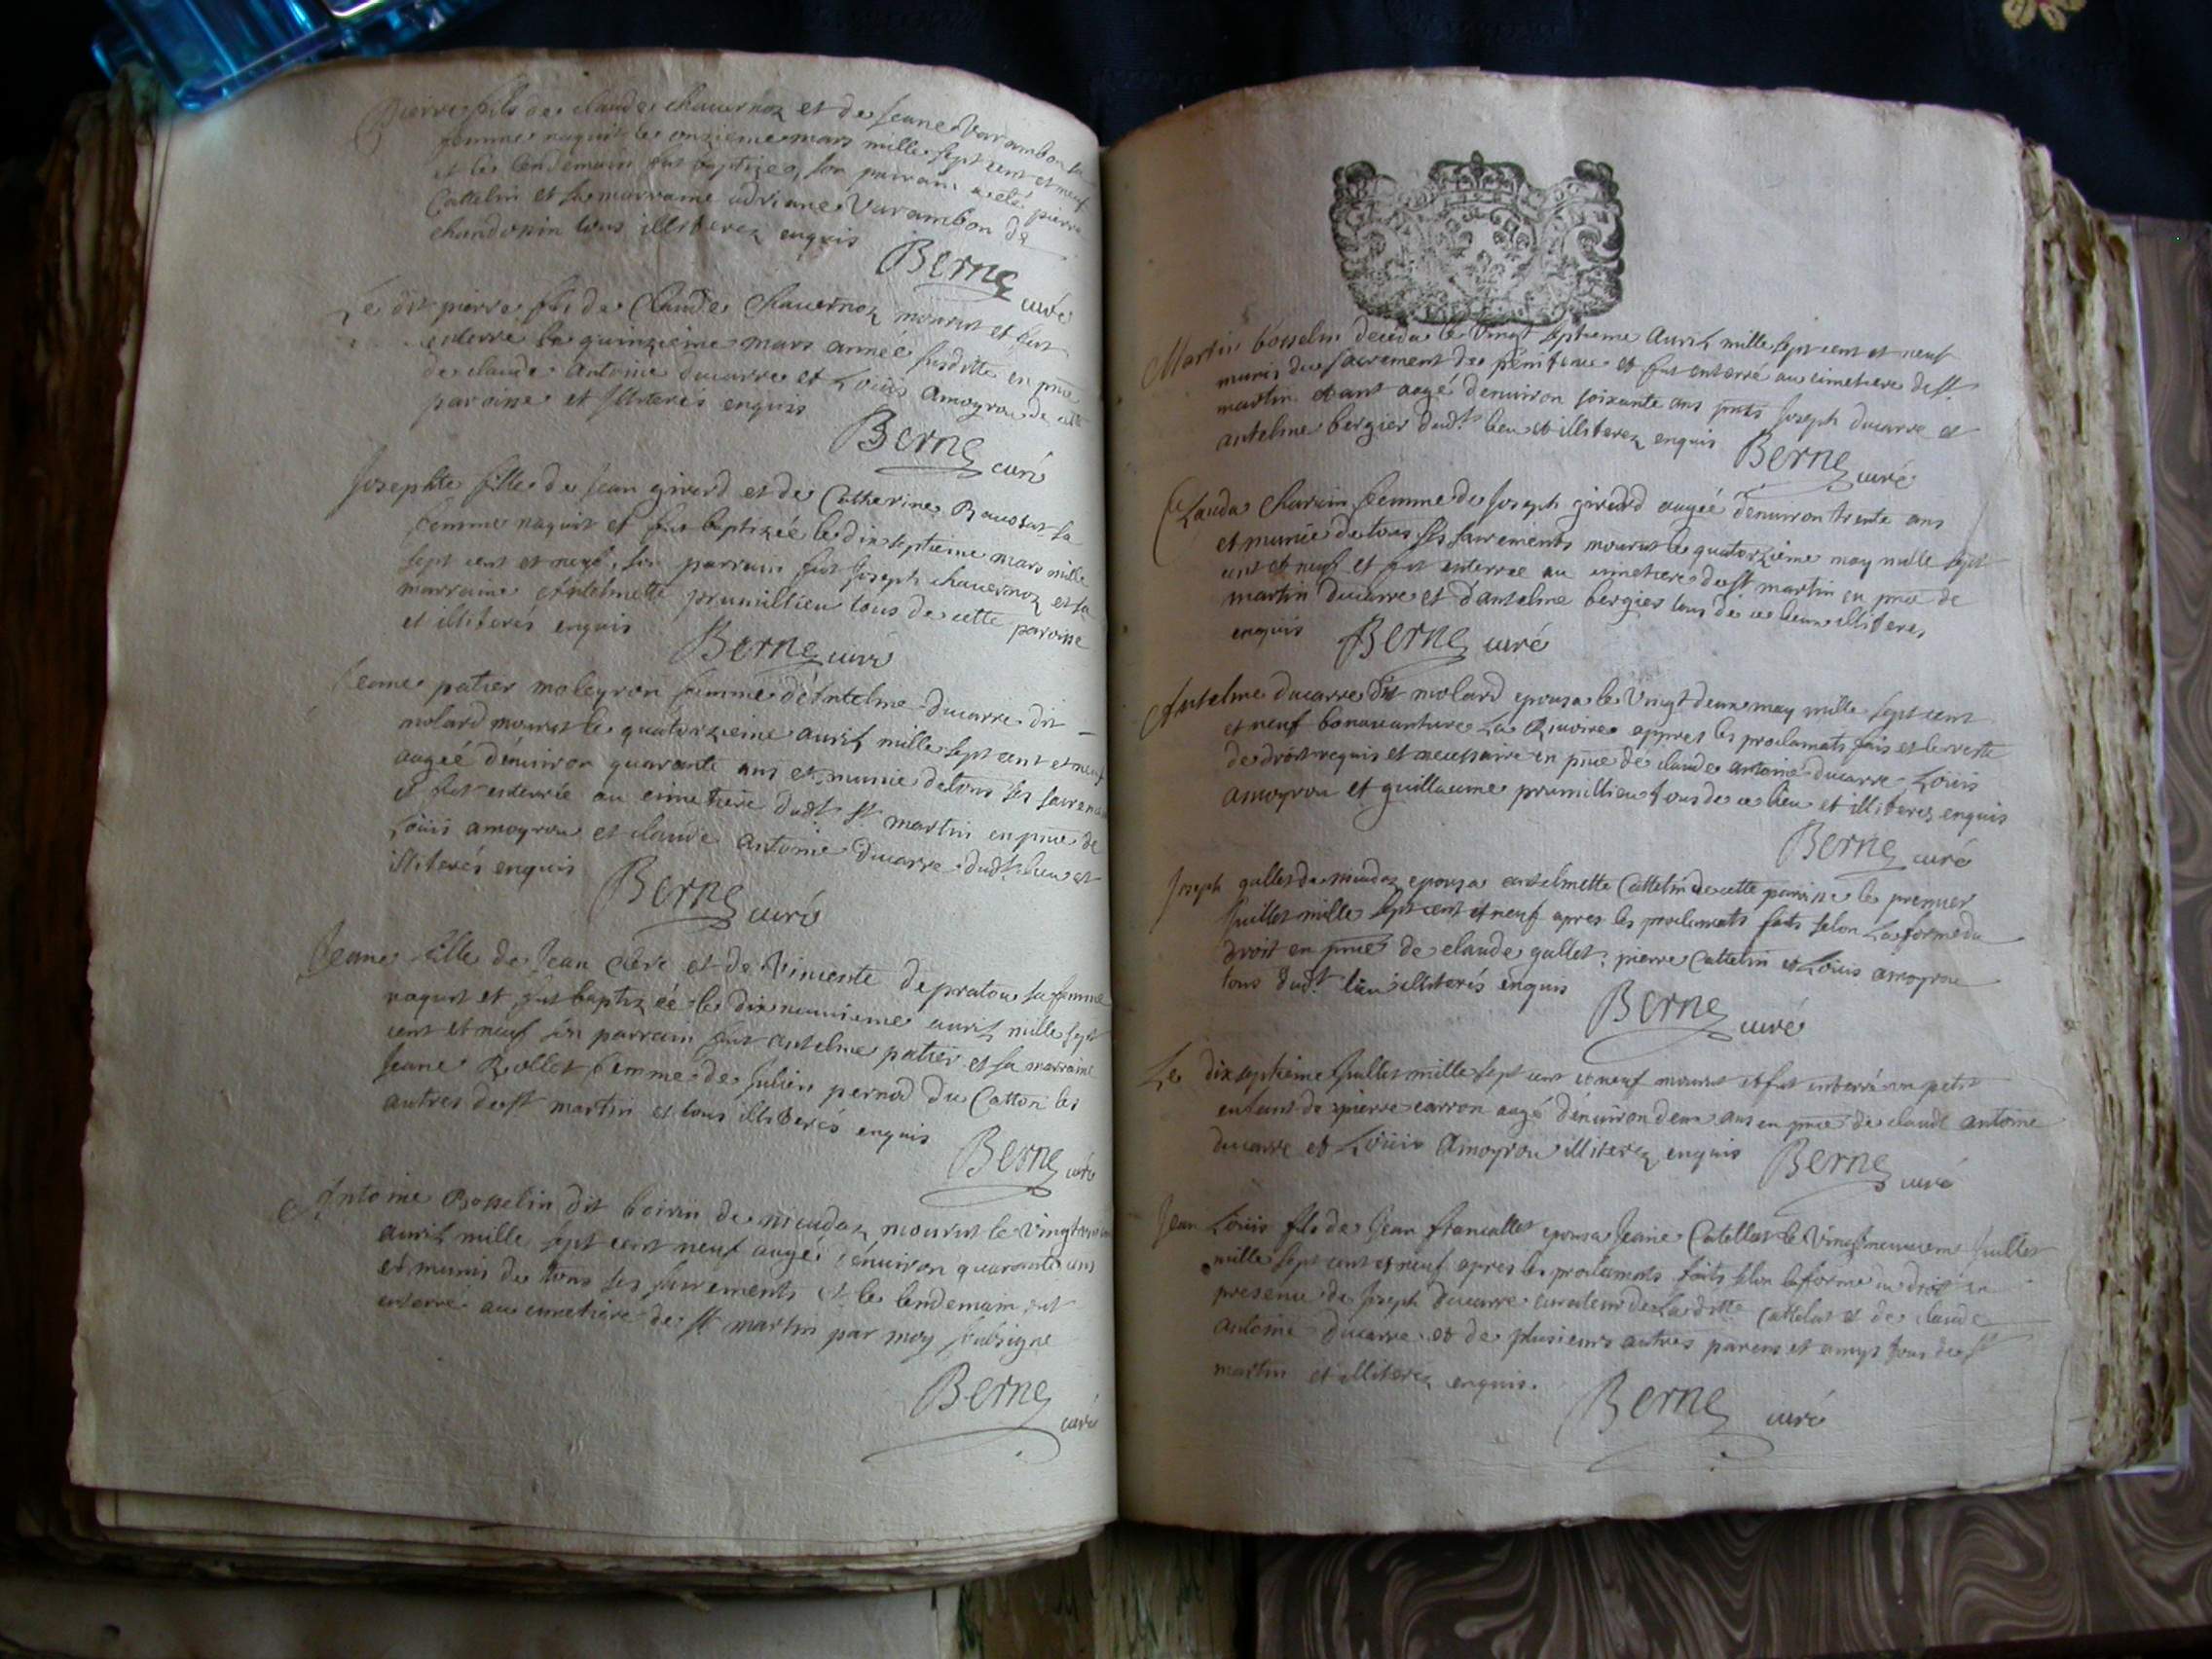 Pierre fils de claude chauernoz et de Jeane Varambon sa
femme naquit le onzieme mars mille sept cent et neuf
et le lendemain fut baptizé, son parrain a eté pierre
Cattelin et sa marraine adriane Varambon de
chandossin tous illiterez enquis
Berne curé
Le dit pierre fils de Claude Chauernoz mourut et fut
enterre le quinzieme mars année susditte en pnce
de claude Antoine ducarre et Loüis Amoyrou de cette
paroisse et illiteres enquis
Berne curé
Josephte fille de Jean girerd et de Catherine Roussat sa
femme naquit et fut baptizée le dix septieme mars mille
sept cent et neuf, son parrain fut Joseph chauernoz et sa
marraine Antelmette prumillieu tous de cette paroisse
et illiterés enquis
Berne curé
Jeane patier moleyron femme d'Antelme ducarre dit
molard mourut le quatorzieme auril mille sept cent et neuf
augée d'enuiron quarante ans et munie de tous ses
et fut enterrée au cimetiere dudt. st. martin en pnce de
Loüis amoyrou et claude antoine Ducarre dudt. lieu et
illiterés enquis
Berne curé
Jeane fille de Jean Clere et de Vincente depratou sa femme
naquit et fut baptizéé le dix neuuieme auril mille sept
cent et neuf son parrain fut antelme patier et sa marraine
Jeane Rollet femme de Julien pernod du Catton les
autres de st martin et tous illiterés enquis
Berne curé
Antoine Bosselin dit boirin de meudaz mourut le
auril mille sept cent neuf augé d'enuiron quarante ans
et munis de tous ses sacrements et le lendemain fut
enterré au cimetiere de st martin par moy soubsigne
Berne curé
Martin bosselin deceda le Vingt septieme Auril mille sept cent et neuf
munis du sacrement de penitence et fut enterré au cimetiere de st.
martin etant augé d'enuiron soixante ans pnts Joseph ducarre et
antelme bergier dudt. lieu et illiterez enquis
Berne curé
Clauda Charuin femme de Joseph girerd augéé d'enuiron trente ans
et munie de tous ses sacrements mourut le quatorzieme may mille sept
cent et neuf et fut enterree au cimetiere de st martin en pnce de
martin ducarre et d'antelme bergier tous de ce lieu illiteres
enquis
Berne curé
Antelme ducarre dit molard epousa le Vingt deux may mille sept cent
et neuf bonauanture La Riuoire appres les proclamats fais et le reste
de droit requis et necessaire en pnce de claude antoine ducarre Loüis
amoyrou et guillaume prumillieu tous de ce lieu et illiterez enquis
Berne curé
Joseph gallet de meudaz epousa antelmette Cattelin de cette paroisse le premier
Juillet mille sept cent et neuf apres les proclamats faits selon La forme du
droit en pnce de claude gallet, pierre Cattelin et Loüis amoyrou
tous dudt. lieu illiterés enquis
Berne curé
Le dix septieme Juillet mille sept cent et neuf mourut et fut enterré un petit
enfant de pierre carron augé d'enuiron deux ans en pnce de claude antoine
ducarre et Loüis Amoyrou illiterez enquis
Berne curé
Jean Loüis fils de Jean francallet epousa Jeane Catellat le Vingt neuuieme Juillet
mille sept cent et neuf apres les proclamats faits selon la forme du droit en
presence de Joseph Ducarre curateur de La ditte Cattelat et de claude
antoine Ducarre et de plusieurs autres parens et amys tous de st
martin et illiterez enquis.
Berne curé